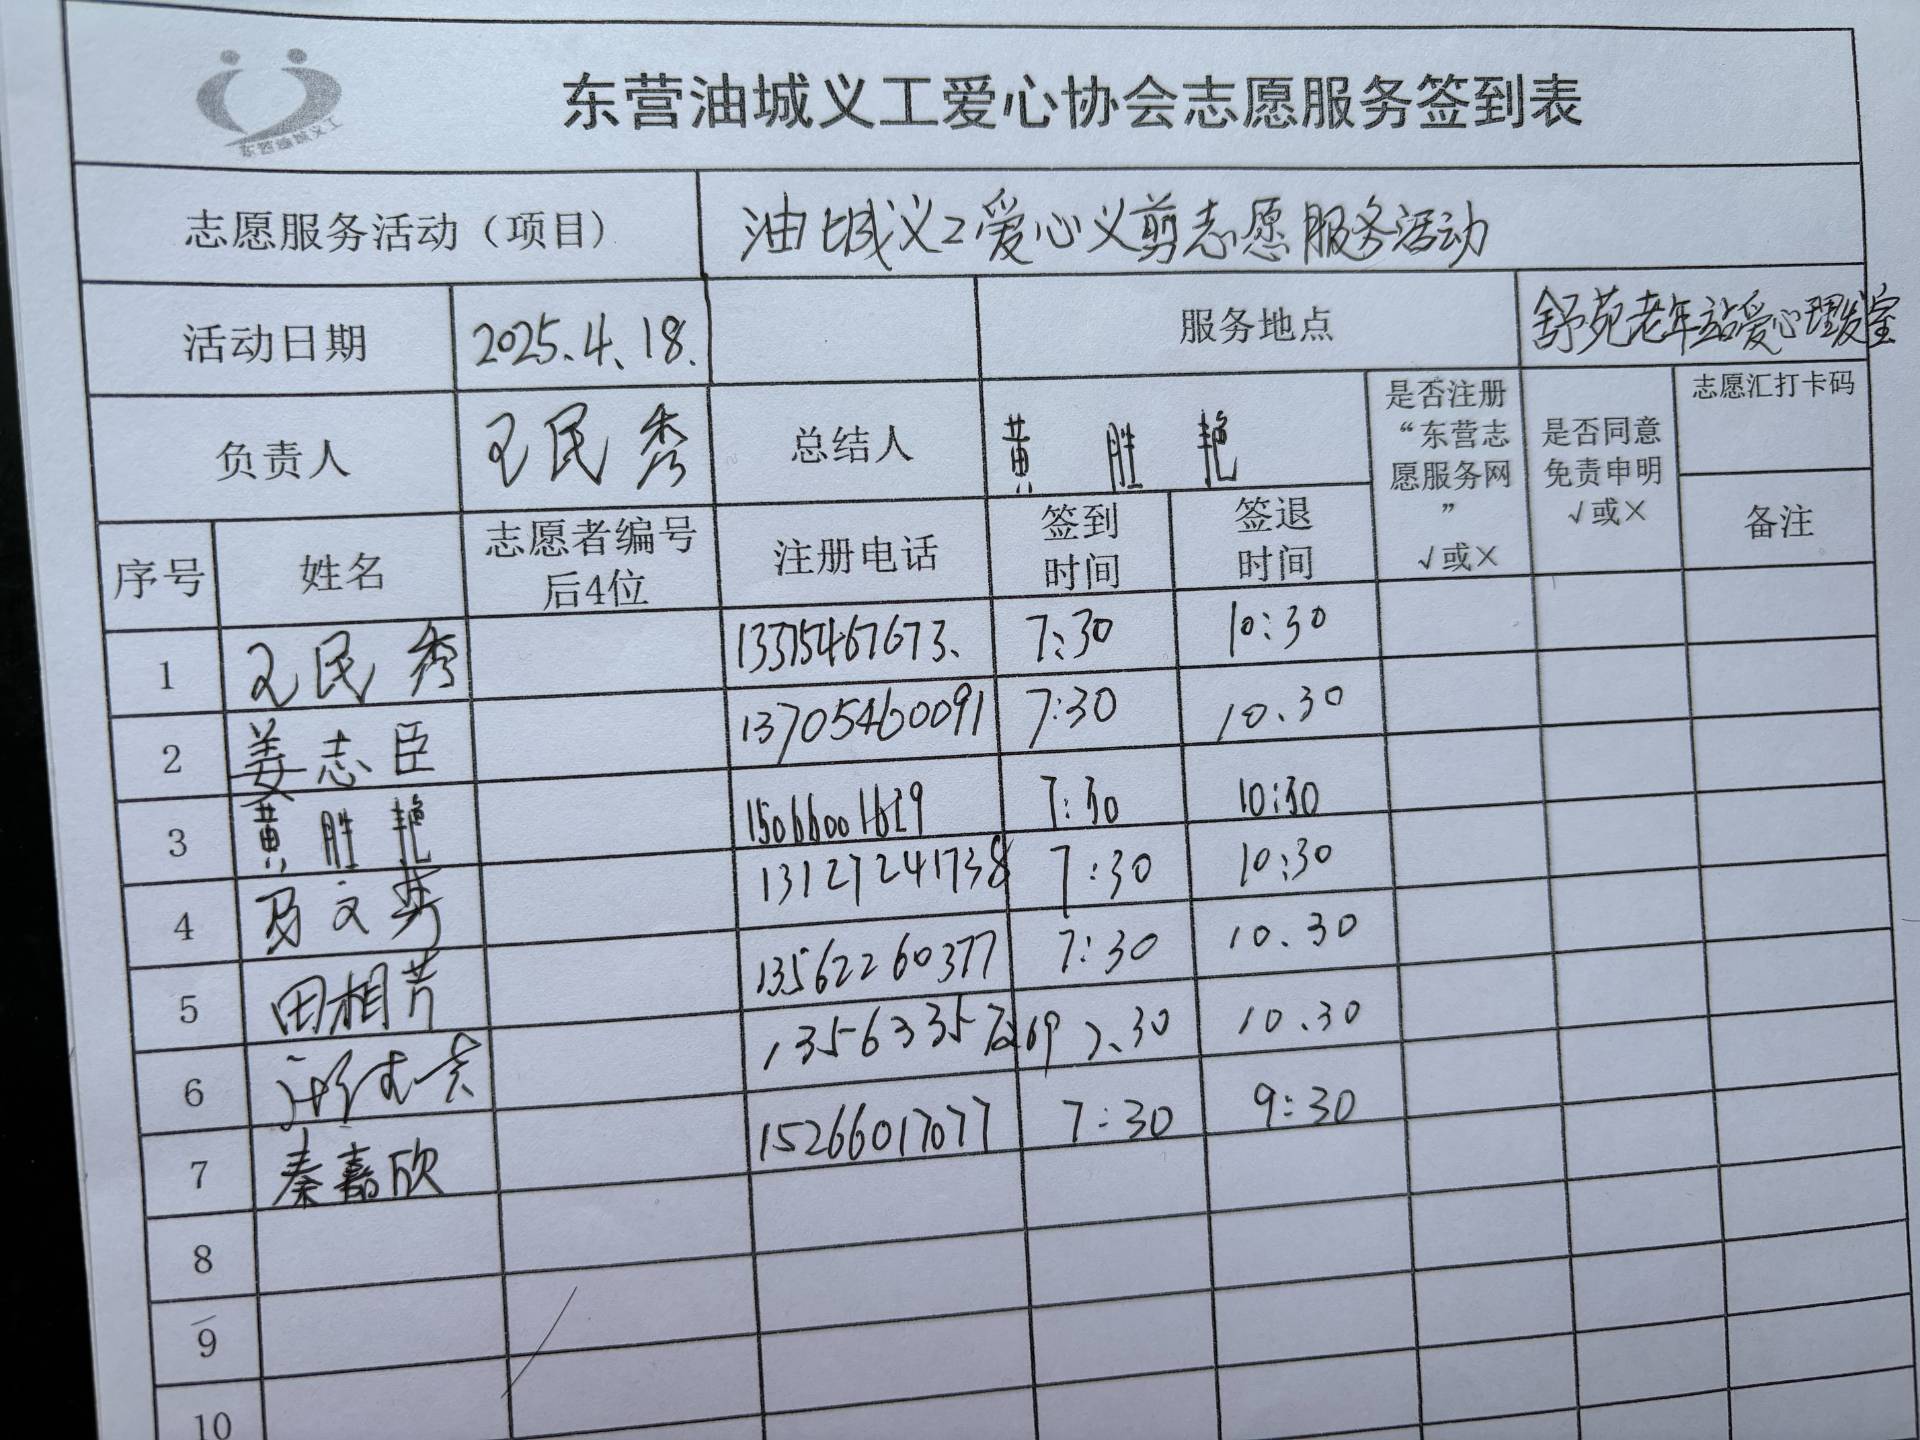 东营油城义工爱心协会志愿服务签到表
志愿服务活动（项目） 油城义工爱心义剪志愿服务活动
活动日期 2025.4.18. 服务地点 舒苑老年站爱心理发室
负责人 王民秀 总结人 黄胜艳 是否注册“东营志愿服务网” √或× 是否同意免责申明 √或× 志愿汇打卡码
序号 姓名 志愿者编号后4位 注册电话 签到时间 签退时间 备注
1 王民秀 13375467673. 7:30 10:30
2 姜志臣 13705460091 7:30 10.30
3 黄胜艳 15066001629 7:30 10:30
4 文英 13127241738 7:30 10:30
5 田相芳 13562260377 7:30 10.30
6 7.30 10.30
7 秦嘉欣 15266017077 7:30 9:30
8
9
10